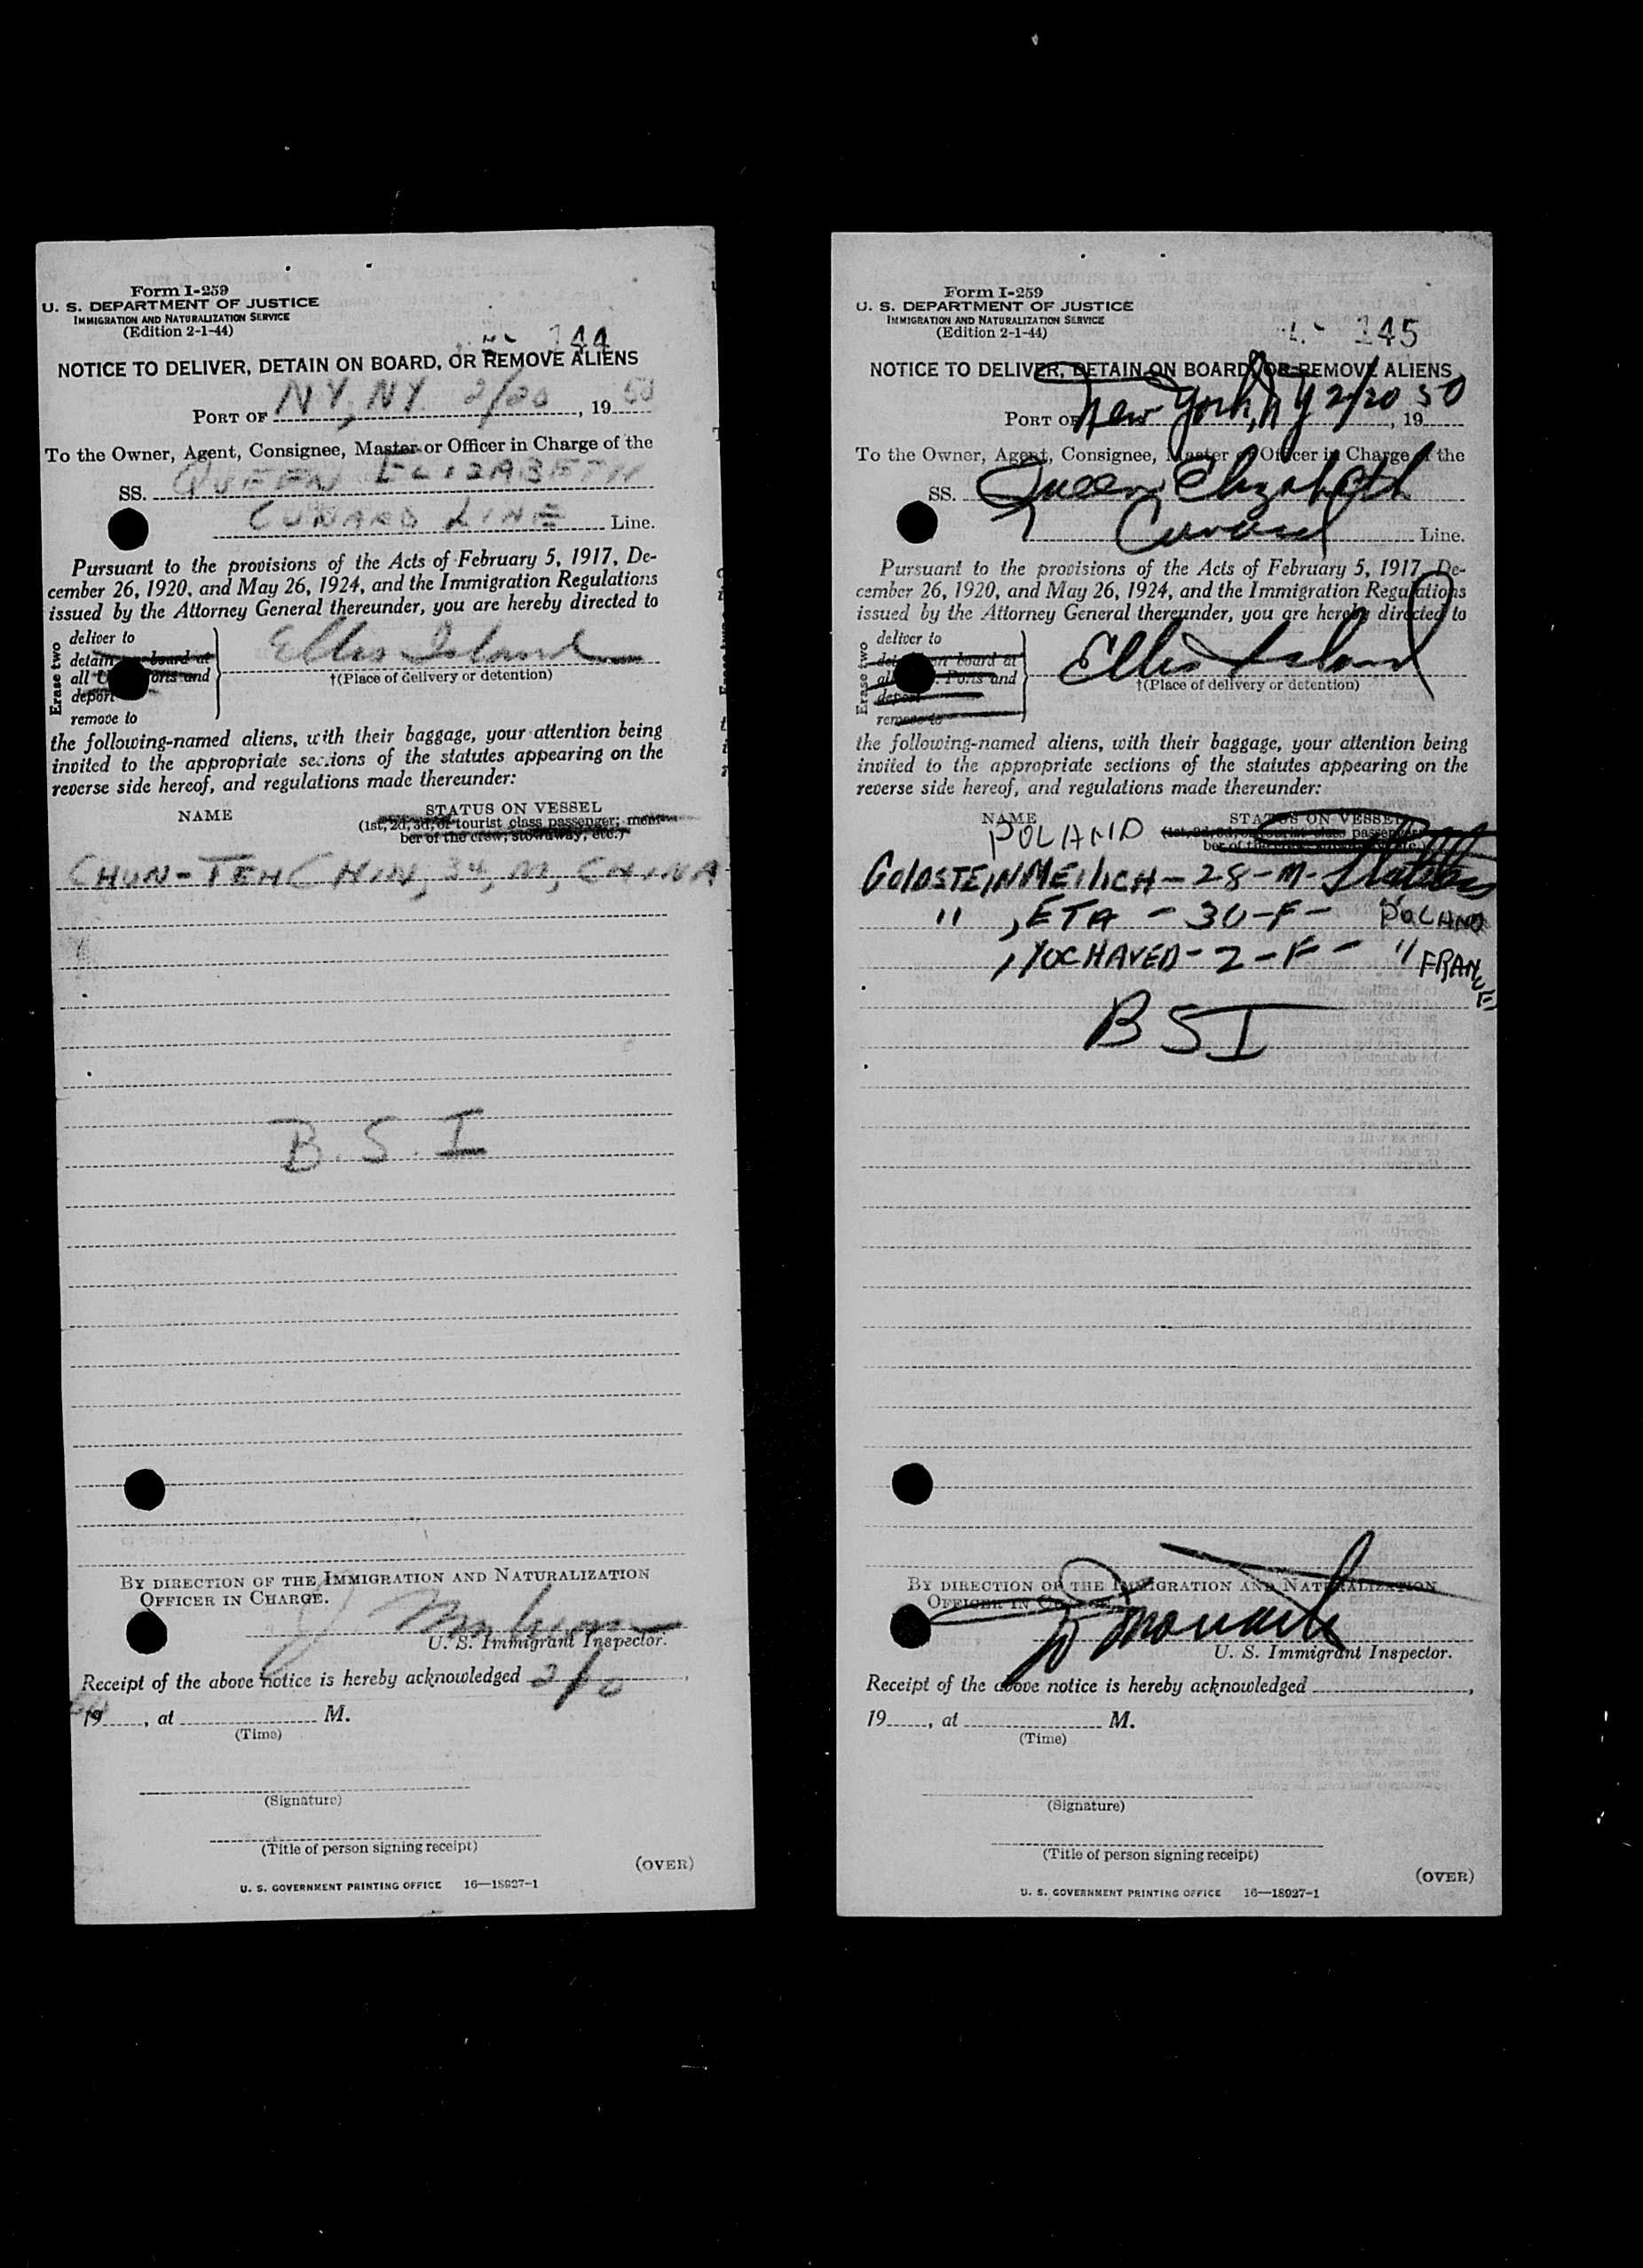 Form I-259
U. S. DEPARTMENT OF JUSTICE
IMMIGRATION AND NATURALIZATION SERVICE
(Edition 2-1-44)
144
NOTICE TO DELIVER, DETAIN ON BOARD, OR REMOVE ALIENS
PORT OF NY, NY. 2/20, 19 50
To the Owner, Agent, Consignee, Master or Officer in Charge of the
SS. QUEEN ELIZABETH
CUNARD LINE Line.
Pursuant to the provisions of the Acts of February 5, 1917, De-
cember 26, 1920, and May 26, 1924, and the Immigration Regulations
issued by the Attorney General thereunder, you are hereby directed to
Erase two
deliver to
detain on board at
all U. S. Ports and
deport
remove to
Ellis Island
†(Place of delivery or detention)
the following-named aliens, with their baggage, your attention being
invited to the appropriate sections of the statutes appearing on the
reverse side hereof, and regulations made thereunder:
NAME
STATUS ON VESSEL
(1st, 2d, 3d, or tourist class passenger; mem-
ber of the crew; stowaway; etc.)
CHUN-TEH CHIN, 34, M, CHINA
B. S. I
BY DIRECTION OF THE IMMIGRATION AND NATURALIZATION
OFFICER IN CHARGE.
U. S. Immigrant Inspector.
Receipt of the above notice is hereby acknowledged
19, at M.
(Time)
(Signature)
(Title of person signing receipt)
(OVER)
U. S. GOVERNMENT PRINTING OFFICE 16—18927-1
Form I-259
U. S. DEPARTMENT OF JUSTICE
IMMIGRATION AND NATURALIZATION SERVICE
(Edition 2-1-44)
145
NOTICE TO DELIVER, DETAIN ON BOARD, OR REMOVE ALIENS
PORT OF New York, N Y 2/20, 19 50
To the Owner, Agent, Consignee, Master or Officer in Charge of the
SS. Queen Elizabeth
Cunard Line.
Pursuant to the provisions of the Acts of February 5, 1917, De-
cember 26, 1920, and May 26, 1924, and the Immigration Regulations
issued by the Attorney General thereunder, you are hereby directed to
Erase two
deliver to
detain on board at
all U. S. Ports and
deport
remove to
Ellis Island
†(Place of delivery or detention)
the following-named aliens, with their baggage, your attention being
invited to the appropriate sections of the statutes appearing on the
reverse side hereof, and regulations made thereunder:
NAME
STATUS ON VESSEL
(1st, 2d, 3d, or tourist class passenger;
ber of the crew; stowaway; etc.)
POLAND
GOLDSTEIN MEILICH - 28 - M -
" , ETA - 30 - F - POLAND
, YOCHAVED - 2 - F - " FRANCE
B S I
BY DIRECTION OF THE IMMIGRATION AND NATURALIZATION
OFFICER IN CHARGE.
U. S. Immigrant Inspector.
Receipt of the above notice is hereby acknowledged ,
19, at M.
(Time)
(Signature)
(Title of person signing receipt)
(OVER)
U. S. GOVERNMENT PRINTING OFFICE 16—18927-1